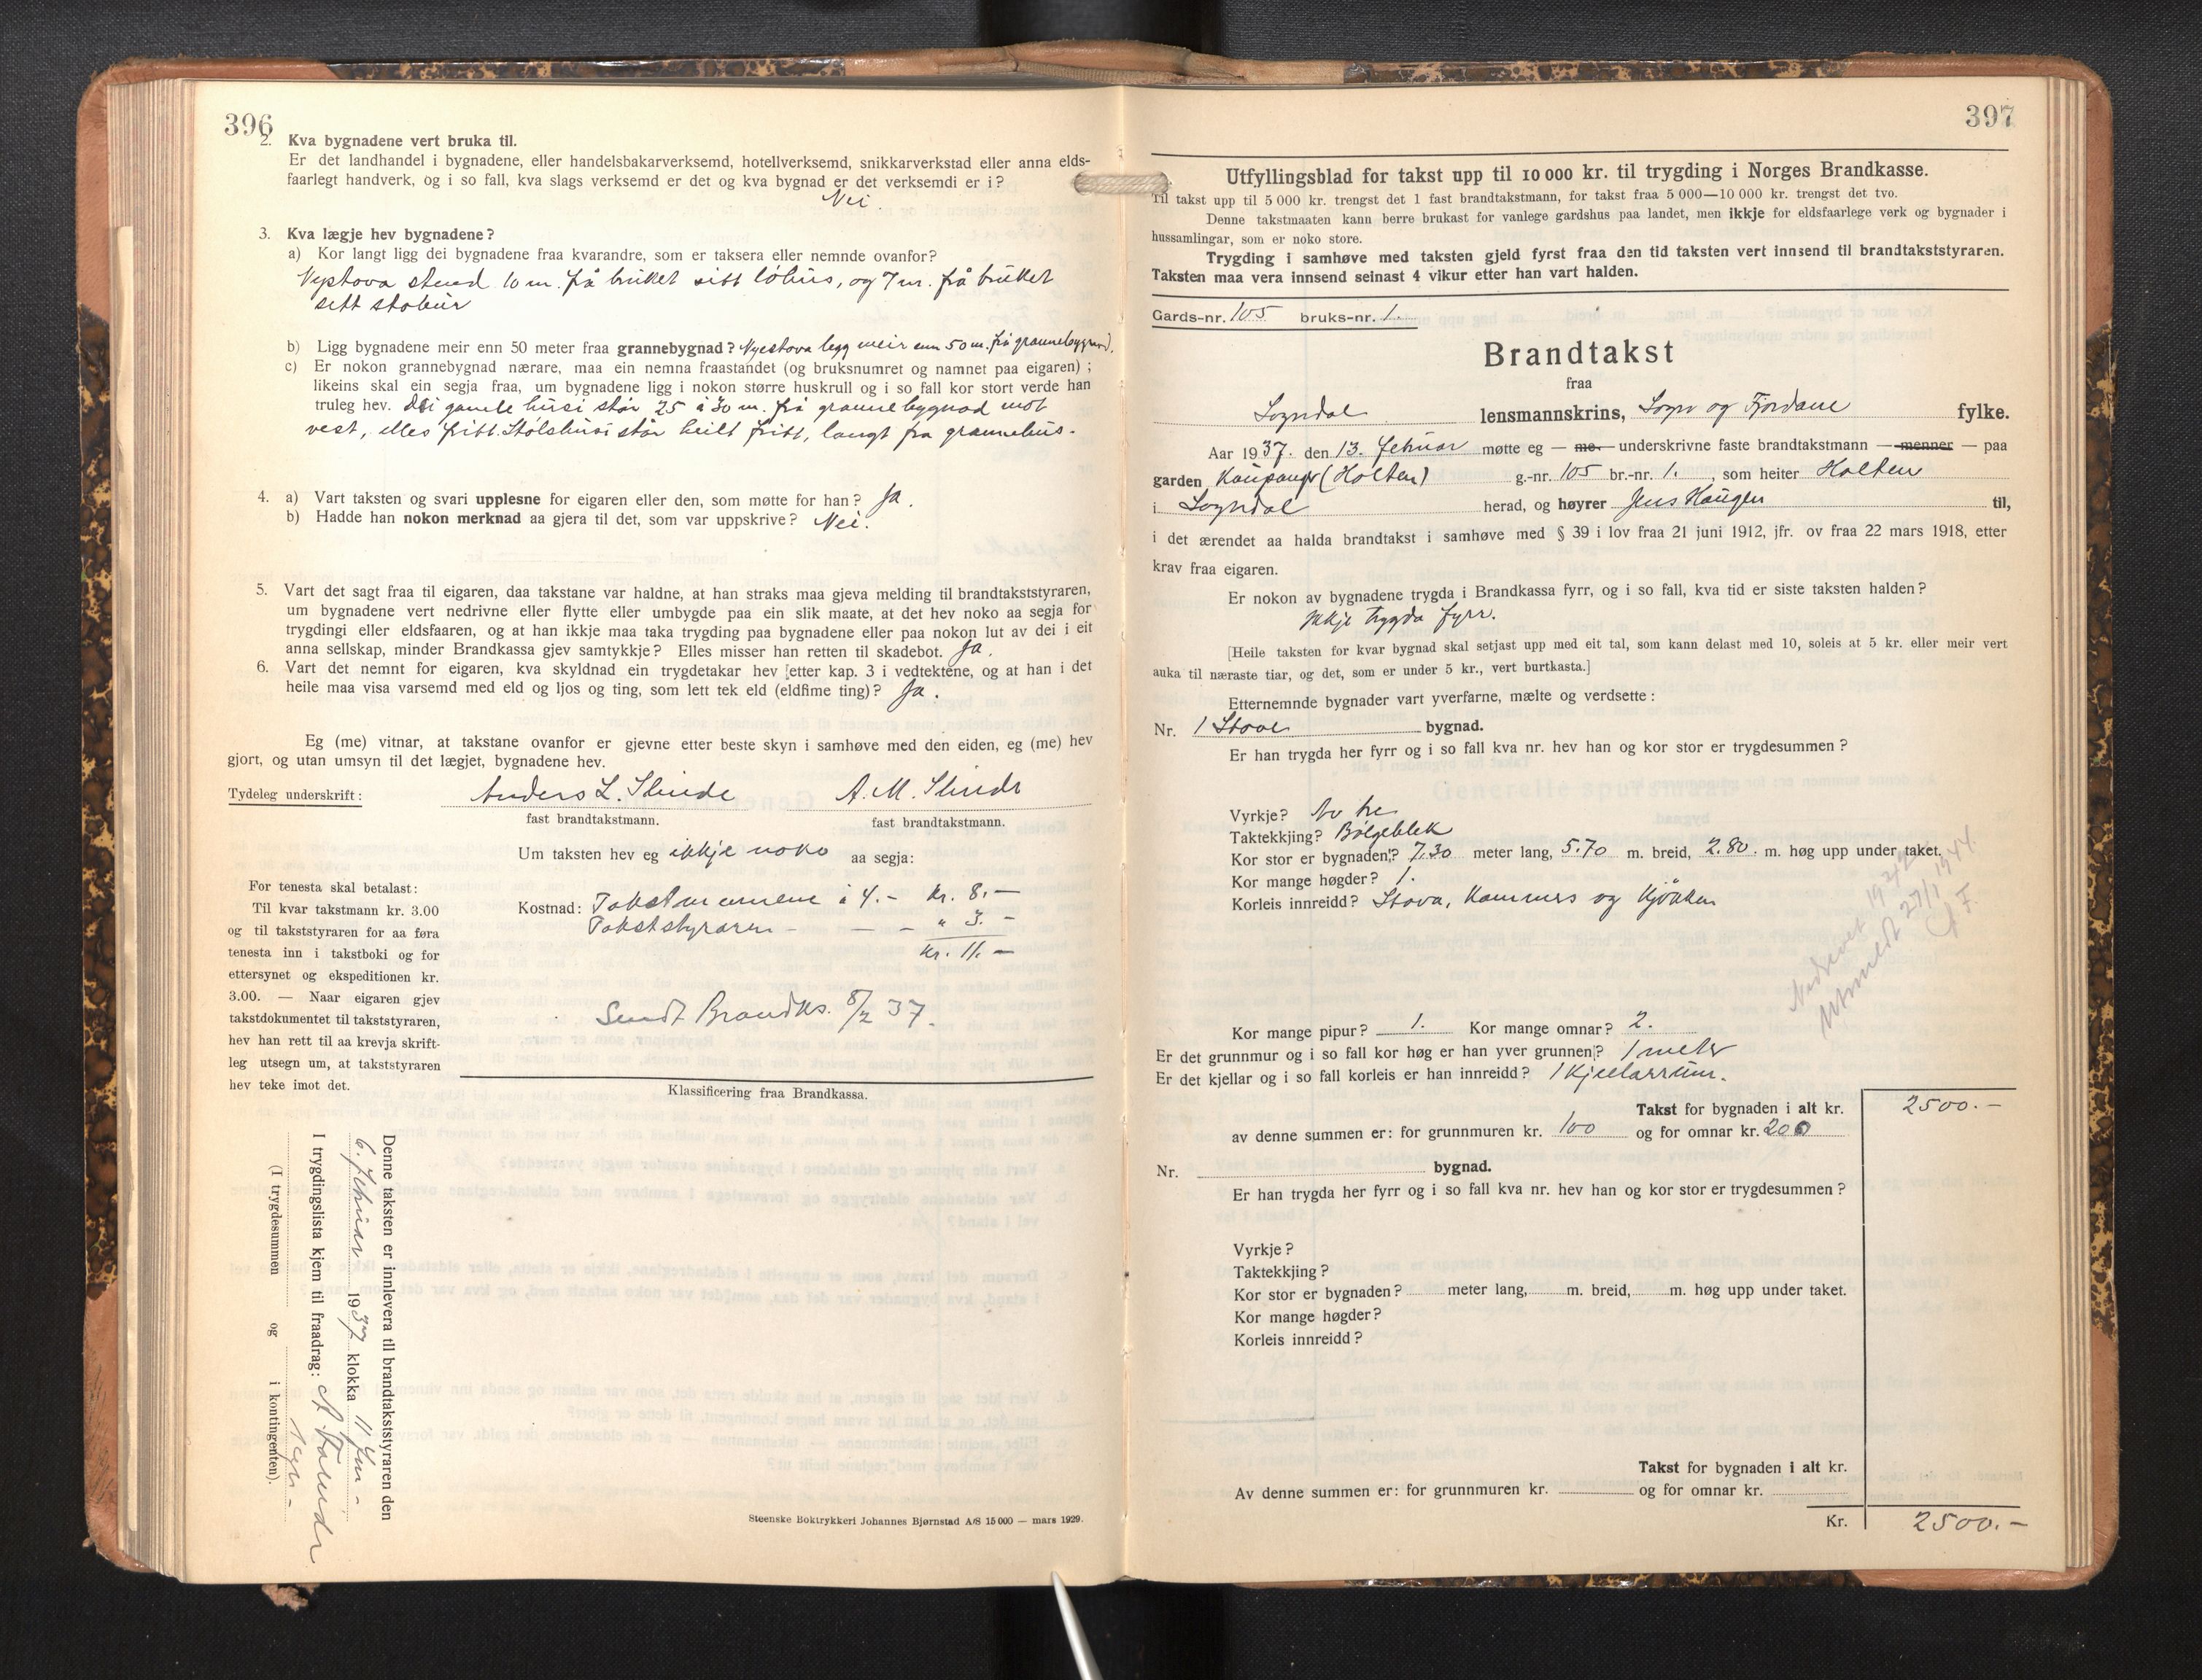 396
2. Kva bygnadene vert bruka til.
Er det landhandel i bygnadene, eller handelsbakarverksemd, hotellverksemd, snikkarverkstad eller anna elds-
faarlegt handverk, og i so fall, kva slags verksemd er det og kva bygnad er det verksemdi er i?
Nei.
3. Kva lægje hev bygnadene?
a) Kor langt ligg dei bygnadene fraa kvarandre, som er taksera eller nemnde ovanfor?
Nystova stend 10 m. frå bruket sitt løhus, og 7 m. frå bruket
sitt stabur
b) Ligg bygnadene meir enn 50 meter fraa grannebygnad? Nyestova legg meir enn 50 m. frå grannebygnad.
c) Er nokon grannebygnad nærare, maa ein nemna fraastandet (og bruksnumret og namnet paa eigaren);
likeins skal ein segja fraa, um bygnadene ligg i nokon større huskrull og i so fall kor stort verde han
truleg hev. Dei gamle husi står 25 à 30 m. frå grannebygnad mot
vest, elles fritt. Stølshusi står heilt fritt, langt fra grannehus.
4. a) Vart taksten og svari upplesne for eigaren eller den, som møtte for han? Ja.
b) Hadde han nokon merknad aa gjera til det, som var uppskrive? Nei.
5. Vart det sagt fraa til eigaren, daa takstane var haldne, at han straks maa gjeva melding til brandtakststyraren,
um bygnadene vert nedrivne eller flytte eller umbygde paa ein slik maate, at det hev noko aa segja for
trygdingi eller eldsfaaren, og at han ikkje maa taka trygding paa bygnadene eller paa nokon lut av dei i eit
anna sellskap, minder Brandkassa gjev samtykkje? Elles misser han retten til skadebot. Ja.
6. Vart det nemnt for eigaren, kva skyldnad ein trygdetakar hev [etter kap. 3 i vedtektene, og at han i det
heile maa visa varsemd med eld og ljos og ting, som lett tek eld (eldfime ting)? Ja.
Eg (me) vitnar, at takstane ovanfor er gjevne etter beste skyn i samhøve med den eiden, eg (me) hev
gjort, og utan umsyn til det lægjet, bygnadene hev.
Tydeleg underskrift: Anders L. Slinde A. M. Slinde
fast brandtakstmann. fast brandtakstmann.
Um taksten hev eg ikkje noko aa segja:
Kostnad: Takstmennene à 4.- kr. 8,-
Takststyraren - - - " 3.-
kr. 11.-
Sendt Brandks. 8/2 37.
For tenesta skal betalast:
Til kvar takstmann kr. 3.00
og til takststyraren for aa føra
tenesta inn i takstboki og for
ettersynet og ekspeditionen kr.
3.00. — Naar eigaren gjev
takstdokumentet til takststyraren,
hev han rett til aa krevja skrift-
leg utsegn um, at takststyraren
hev teke imot det.
Klassificering fraa Brandkassa.
Denne taksten er innlevera til brandtakststyraren den
6. februar 1937 klokka 11
I trygdingslista kjem til fraadrag:
(I trygdesummen og i kontingenten).
Steenske Boktrykkeri Johannes Bjørnstad A/S 15 000 — mars 1929.
397
Utfyllingsblad for takst upp til 10 000 kr. til trygding i Norges Brandkasse.
Til takst upp til 5 000 kr. trengst det 1 fast brandtakstmann, for takst fraa 5 000—10 000 kr. trengst det tvo.
Denne takstmaaten kann berre brukast for vanlege gardshus paa landet, men ikkje for eldsfaarlege verk og bygnader i
hussamlingar, som er noko store.
Trygding i samhøve med taksten gjeld fyrst fraa den tid taksten vert innsend til brandtakststyraren.
Taksten maa vera innsend seinast 4 vikur etter han vart halden.
Gards-nr. 105 bruks-nr. 1.
Brandtakst
fraa
Sogndal lensmannskrins, Sogn og Fjordane fylke.
Aar 1937. den 13. februar møtte eg — me — underskrivne faste brandtakstmann — menner — paa
garden Kaupanger (Holten) g.-nr. 105 br.-nr. 1. , som heiter Holten
i Sogndal herad, og høyrer Jens Haugen til,
i det ærendet aa halda brandtakst i samhøve med § 39 i lov fraa 21 juni 1912, jfr. ov fraa 22 mars 1918, etter
krav fraa eigaren.
Er nokon av bygnadene trygda i Brandkassa fyrr, og i so fall, kva tid er siste taksten halden?
Ikkje trygda fyrr.
[Heile taksten for kvar bygnad skal setjast upp med eit tal, som kann delast med 10, soleis at 5 kr. eller meir vert
auka til næraste tiar, og det, som er under 5 kr., vert burtkasta.]
Etternemnde bygnader vart yverfarne, mælte og verdsette:
Nr. 1 Stove bygnad.
Er han trygda her fyrr og i so fall kva nr. hev han og kor stor er trygdesummen?
Vyrkje? Av tre
Taktekkjing? Bølgeblek
Kor stor er bygnaden? 7.30 meter lang, 5.70 m. breid, 2.80. m. høg upp under taket.
Kor mange høgder? 1.
Korleis innreidd? Stova, kammers og kjøken
Nedrevet 1942
Utmeldt 27/1 1944.
Kor mange pipur? 1. Kor mange omnar? 2.
Er det grunnmur og i so fall kor høg er han yver grunnen? 1 meter
Er det kjellar og i so fall korleis er han innreidd? 1 kjellarrum.
Takst for bygnaden i alt kr. 2500.-
av denne summen er: for grunnmuren kr. 100 og for omnar kr. 200
Nr. bygnad.
Er han trygda her fyrr og i so fall kva nr. hev han og kor stor er trygdesummen?
Vyrkje?
Taktekkjing?
Kor stor er bygnaden? meter lang, m. breid, m. høg upp under taket.
Kor mange høgder?
Korleis innreidd?
Takst for bygnaden i alt kr.
Av denne summen er: for grunnmuren kr. og for omnar kr.
Kr. 2500.-